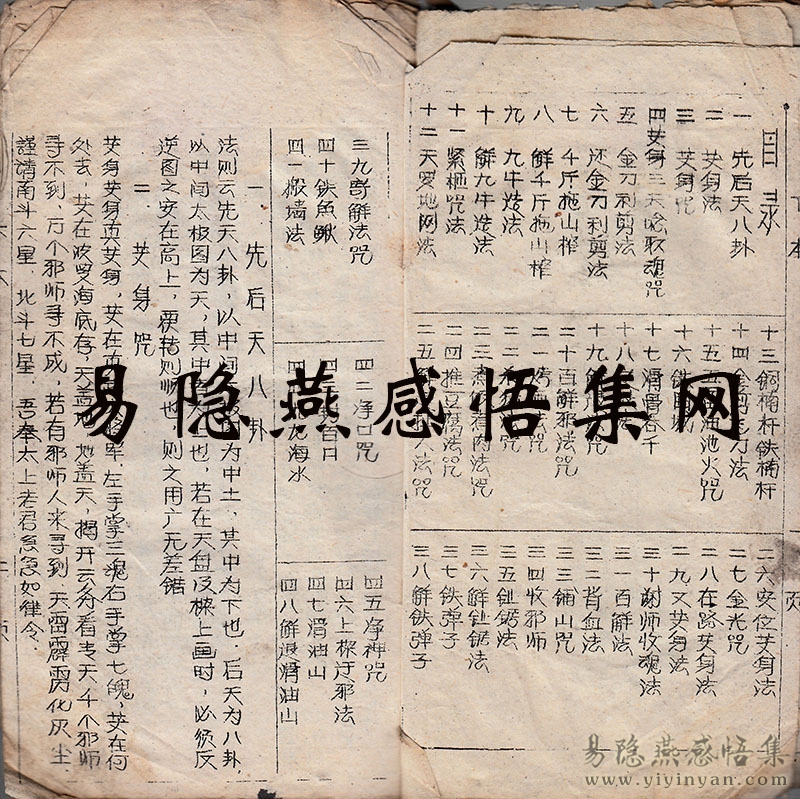 目录
一 先后天八卦
二 艾身法
三 艾身咒
四 艾身三天唸收魂咒
五 金刀利剪法
六 还金刀利剪法
七 千斤拖山榨
八 解千斤拖山榨
九 九牛造法
十 解九牛造法
十一 紧栀咒法
十二 天罗地网法
十三 铜桶杆铁桶杆
十四
十五 池火咒
十六
十七 滑骨吞千
十八
十九
二十 百解邪法
二一
二二
二三 法咒
二四 推豆腐法咒
二五 法咒
二六 安位艾身法
二七 金光咒
二八 在路艾身法
二九 又艾身法
三十 附师收魂法
三一 百解法
三二 背血法
三三 铺山咒
三四 收邪师
三五 钆锯法
三六 解钆锯法
三七 铁弹子
三八 解铁弹子
三九 解法咒
四十 铁鱼鳅
四一 搬墙法
四二 净口咒
四 百口
四 龙海水
四五 净神咒
四六 上樑迁邪法
四七 滑油山
四八 解退滑油山
一 先后天八卦
法则云先天八卦，以中间 为中土，其中为下也．后天为八卦
以中间太极图为天，其中 上也，若在天盘及樑上画时，必须反
逆图之安在高上， 则师也，则之用广无差错
二 艾身咒
艾身艾身真艾身，艾在 将军．左手掌三魂右手掌七魄，艾在何
处去，艾在波罗海底存，天盖地，地盖天，揭开云雾看青天千个邪师
寻不到，万个邪师寻不成，若有邪师人来寻到，天雷霹雳化灰尘．
谨请南斗六星．北斗七星．吾奉太上老君急急如律令．
易隐燕感悟集网
易隐燕感悟集
www.yiyinyan.com